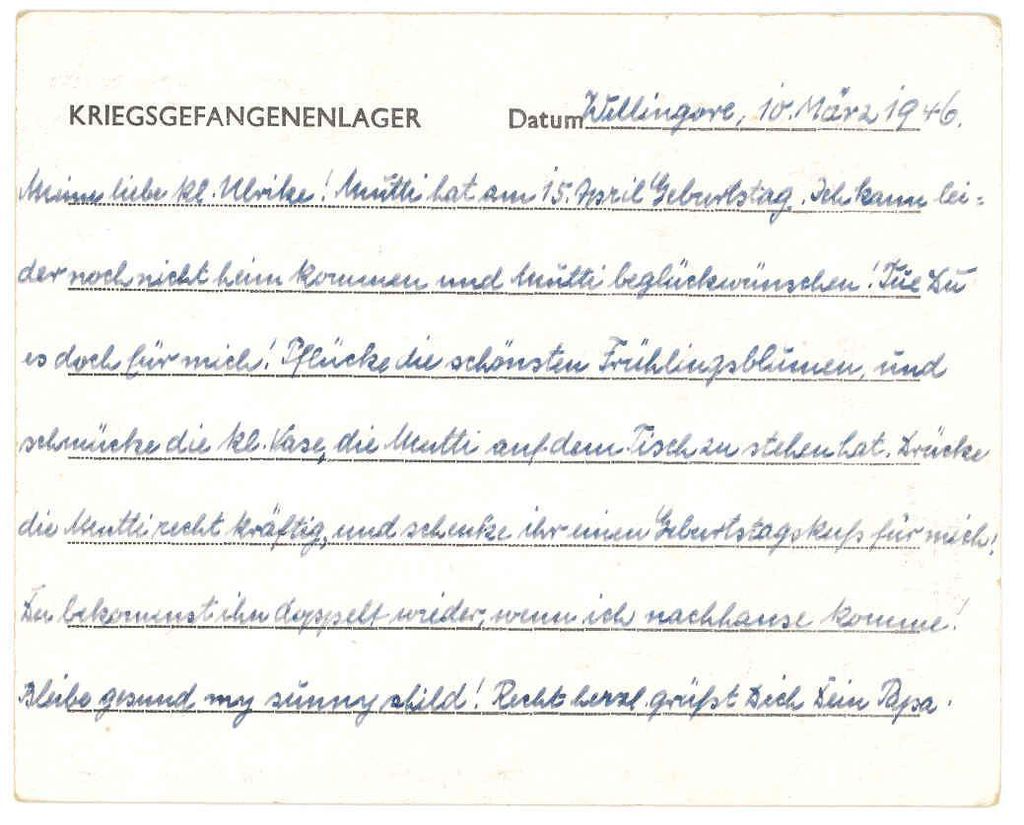 KRIEGSGEFANGENENLAGER Datum Wellingore, 10. März 1946.
Meine liebe kl. Ulrike! Mutti hat am 15. April Geburtstag. Ich kann lei=
der noch nicht heim kommen und Mutti beglückwünschen! Tue Du
es doch für mich! Pflücke die schönsten Frühlingsblumen, und
schmücke die kl. Vase, die Mutti auf dem Tisch zu stehen hat. Drücke
die Mutti recht kräftig, und schenke ihr einen Geburtstagskuß für mich!
Du bekommst ihn doppelt wieder, wenn ich nachhause komme!
Bleibe gesund my sunny child! Recht herzl. grüßt Dich Dein Papa.